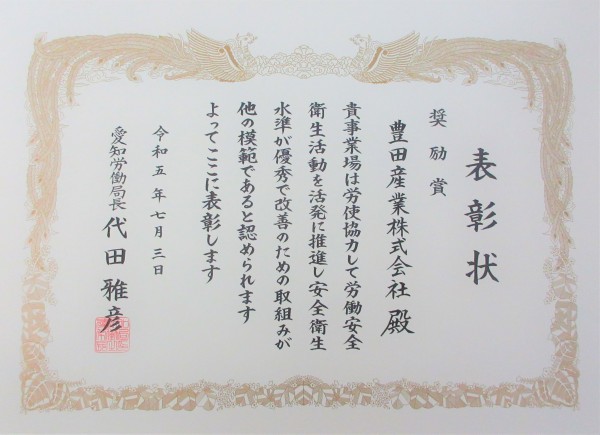 表彰状
奨励賞
豊田産業株式会社殿
貴事業場は労使協力して労働安全
衛生活動を活発に推進し安全衛生
水準が優秀で改善のための取組みが
他の模範であると認められます
よってここに表彰します
令和五年七月三日
愛知労働局長 代田雅彦